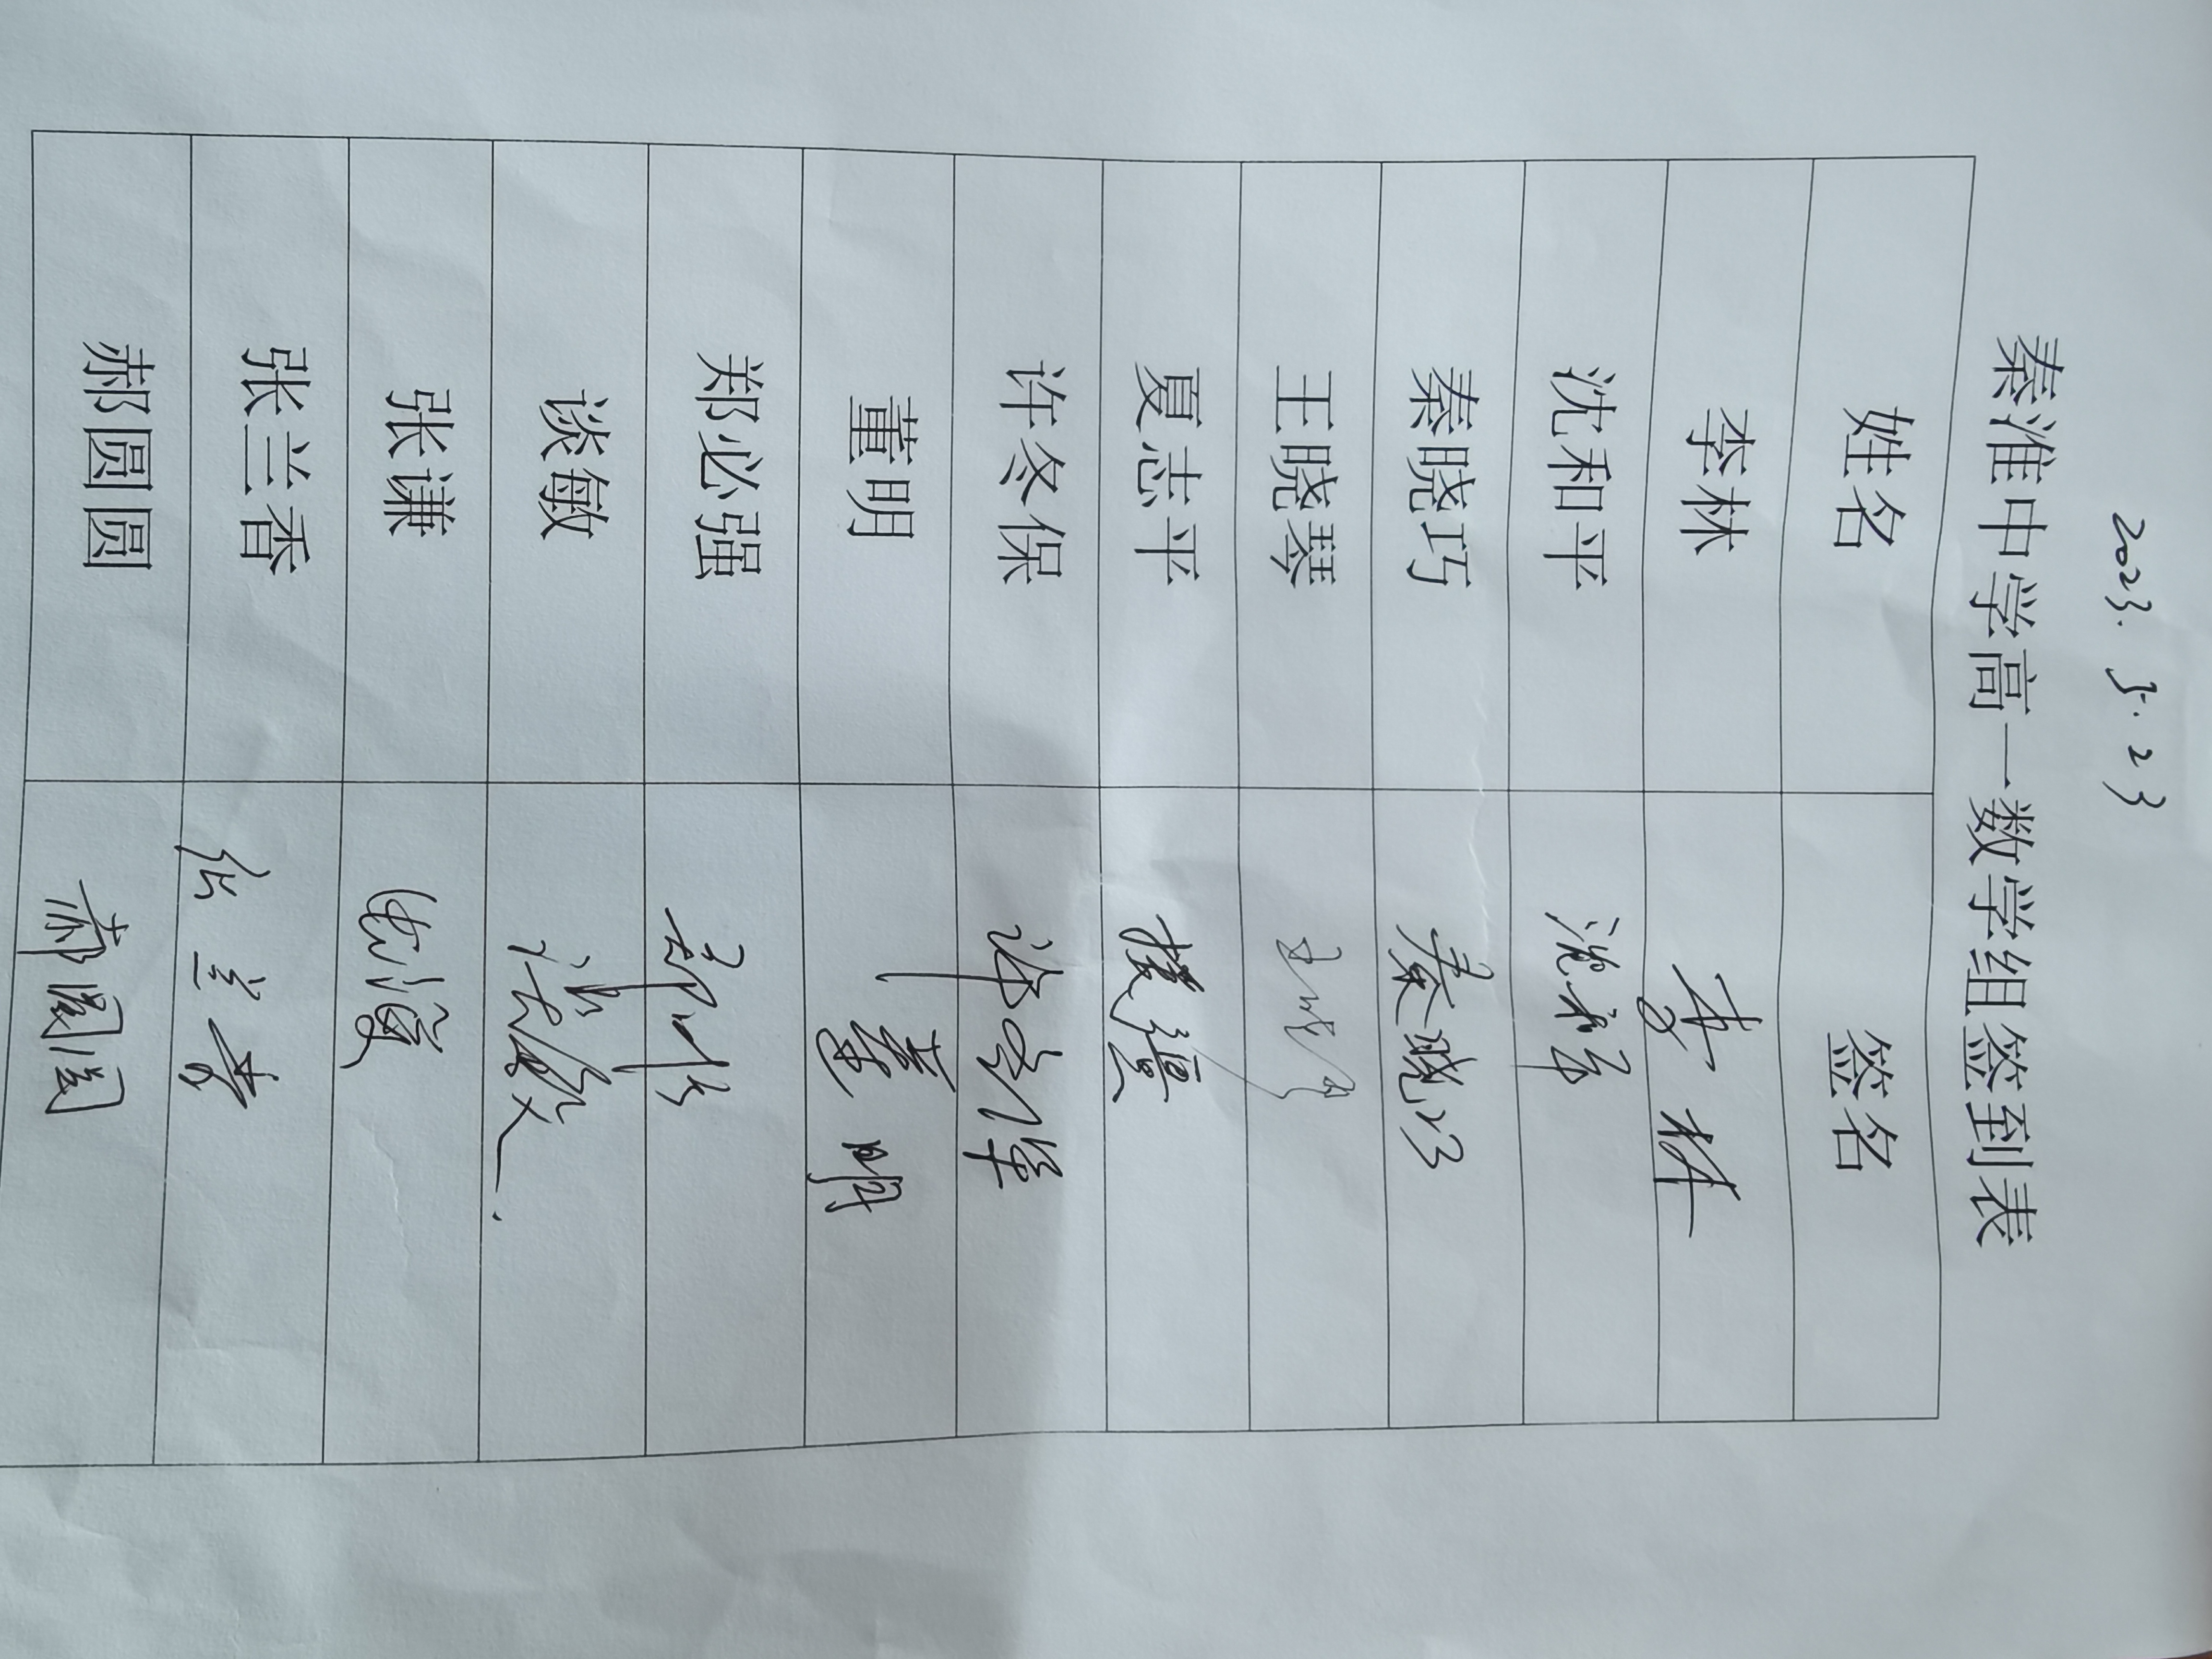 2023. 5. 23
秦淮中学高一数学组签到表
姓名 签名
李林 李林
沈和平 沈和平
秦晓巧 秦晓巧
王晓琴 王晓琴
夏志平 援疆
许冬保 许冬保
董明 董明
郑必强 郑必强
谈敏 谈敏
张谦 张谦
张兰香 张兰香
郝圆圆 郝圆圆